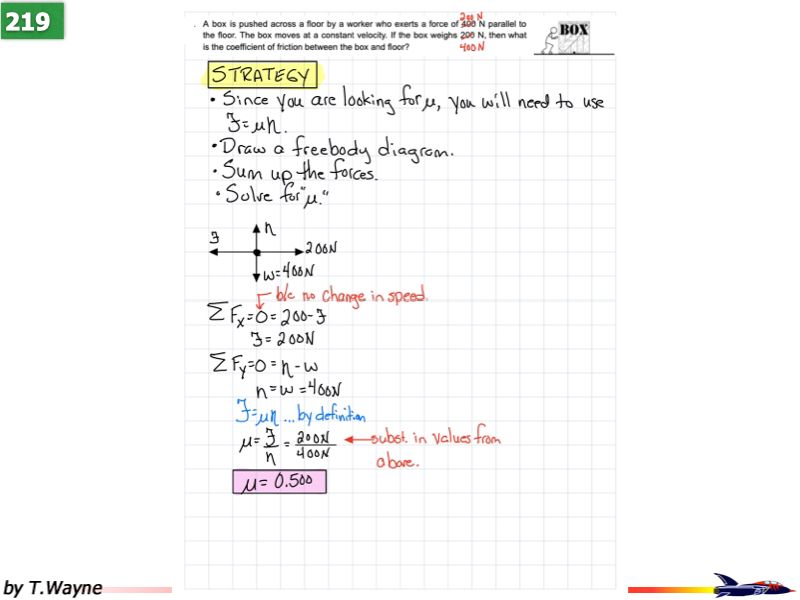 219
200 N
A box is pushed across a floor by a worker who exerts a force of 400 N parallel to
the floor. The box moves at a constant velocity. If the box weighs 200 N, then what
400 N
is the coefficient of friction between the box and floor?
BOX
STRATEGY
• Since you are looking for μ, you will need to use
F=μn.
• Draw a freebody diagram.
• Sum up the forces.
• Solve for "μ."
n
F
200N
w=400N
b/c no change in speed.
ΣFx=0=200-F
F=200N
ΣFy=0=n-w
n=w=400N
F=μn ... by definition
μ= F/n = 200N/400N
subst. in values from
above.
μ= 0.500
by T.Wayne